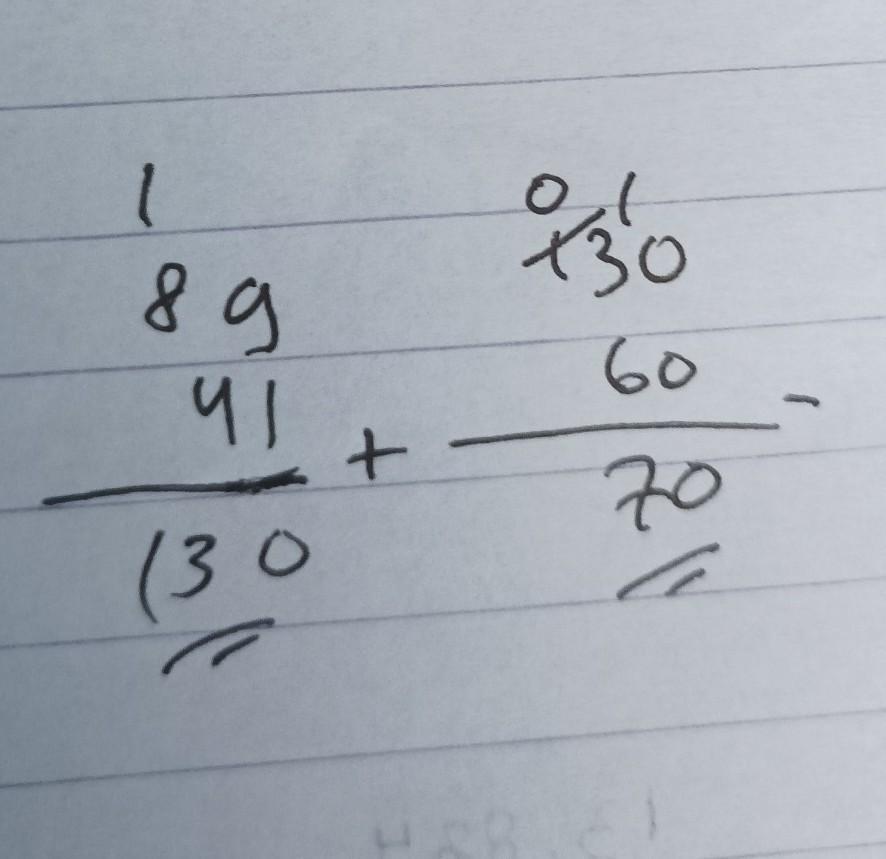 1
89
41
+
130
0 1
130
60
-
70